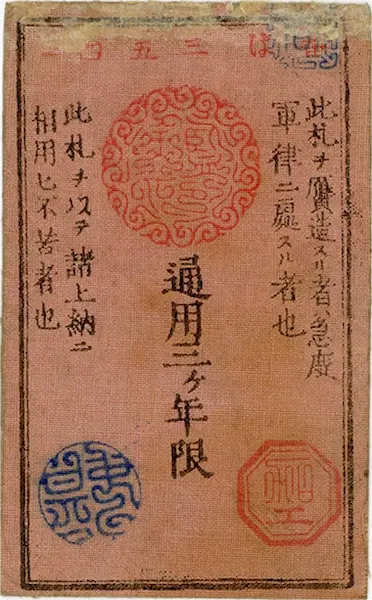 ほ三五四
此札ヲ贋造スル者ハ急度
軍律ニ處スル者也
通用三ヶ年限
此札ヲ以テ諸上納ニ
相用ヒ不苦者也